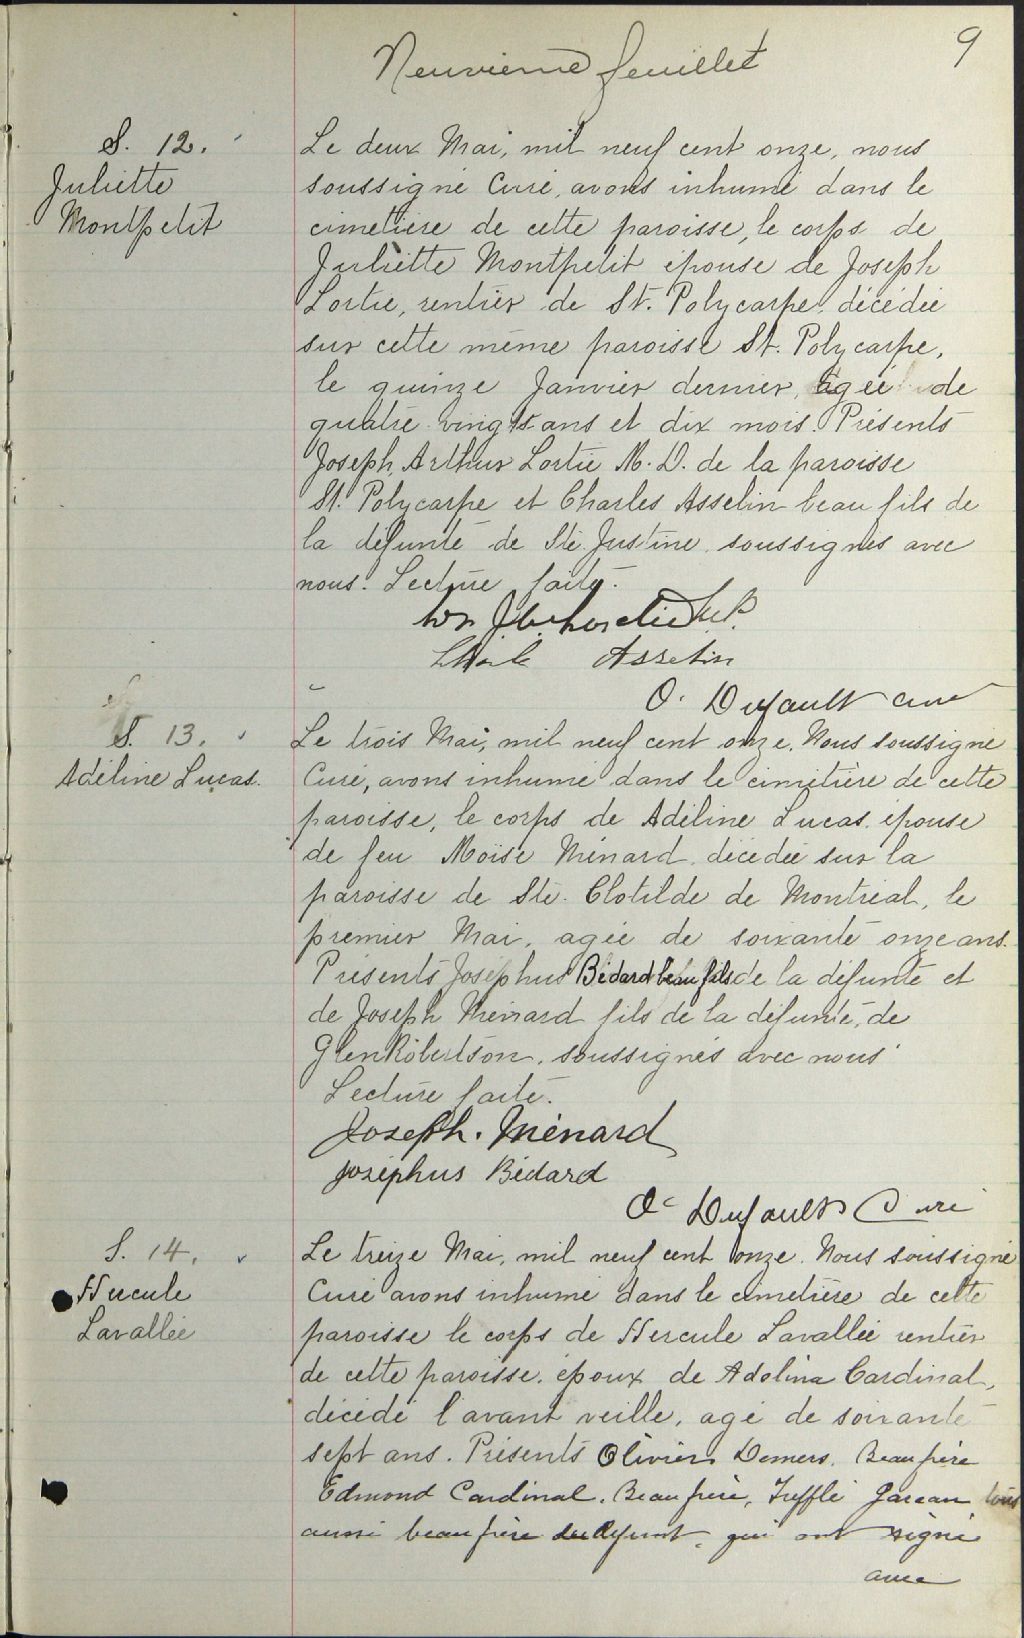 9
Neuvième feuillet
S. 12.
Juliette
Montpetit
Le deux Mai, mil neuf cent onze, nous
soussigné Curé, avons inhumé dans le
cimetière de cette paroisse, le corps de
Juliette Montpetit épouse de Joseph
Lortie, rentier de St. Polycarpe, décédée
sur cette même paroisse St. Polycarpe,
le quinze Janvier dernier, agée de
quatre vingts ans et dix mois. Présents
Joseph Arthur Lortie M.D. de la paroisse
St. Polycarpe et Charles Asselin beau fils de
la défunte de Ste Justine soussignés avec
nous. Lecture faite.
Lortie M.P.
Asselin
O. Dufault curé
S. 13.
Adéline Lucas.
Le trois Mai, mil neuf cent onze. Nous soussigné
Curé, avons inhumé dans le cimetière de cette
paroisse, le corps de Adéline Lucas épouse
de feu Moïse Ménard, décédée sur la
paroisse de Ste. Clotilde de Montréal, le
premier Mai, agée de soixante onze ans.
Présents Joséphus Bédard beau fils de la défunte et
de Joseph Ménard fils de la défunte, de
Glen Robertson, soussignés avec nous.
Lecture faite.
Joseph. Ménard
Joséphus Bédard
O. Dufault Curé
S. 14.
Hercule
Lavallée
Le treize Mai, mil neuf cent onze. Nous soussigné
Curé avons inhumé dans le cimetière de cette
paroisse le corps de Hercule Lavallée rentier
de cette paroisse, époux de Adolina Cardinal,
décédé l'avant veille, agé de soixante
sept ans. Présents Olivier Demers, Beau frère
Edmond Cardinal, Beau frère, Trefflé Gareau tous
aussi beau frère du défunt, qui ont signé
avec